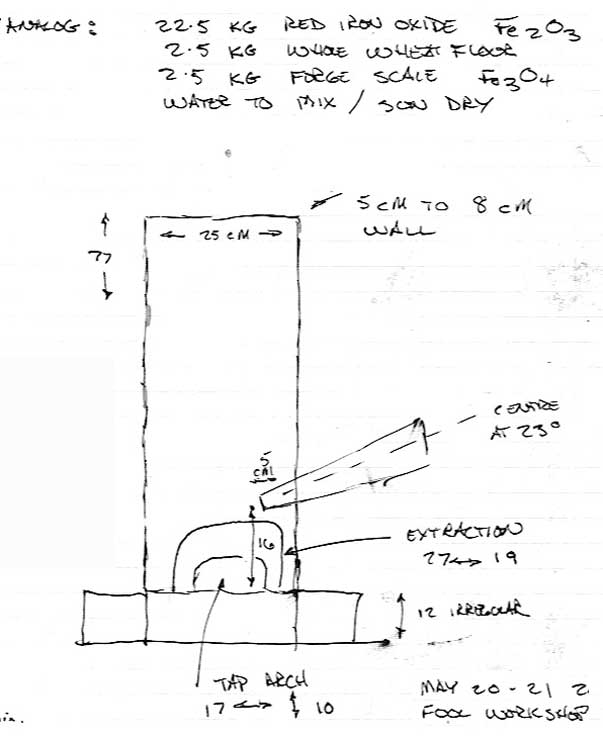 ANALOG: 22.5 KG RED IRON OXIDE Fe2O3
2.5 KG WHOLE WHEAT FLOOR
2.5 KG FORGE SCALE Fe3O4
WATER TO MIX / SUN DRY
5 CM TO 8 CM
WALL
25 CM
77
CENTRE
AT 23°
5
CM
16
EXTRACTION
27 ↔ 19
12 IRREGULAR
TAP ARCH
17 ↔ ↕ 10
MAY 20 - 21 2
FOOL WORKSHOP